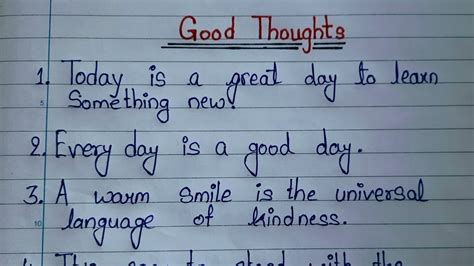 Good Thoughts
1. Today is a great day to learn
Something new!
2. Every day is a good day.
3. A warm smile is the universal
language of kindness.